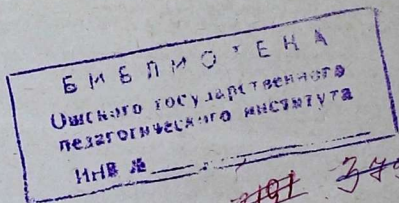 БИБЛИОТЕКА
Ошского государственного
педагогического института
ИНВ №